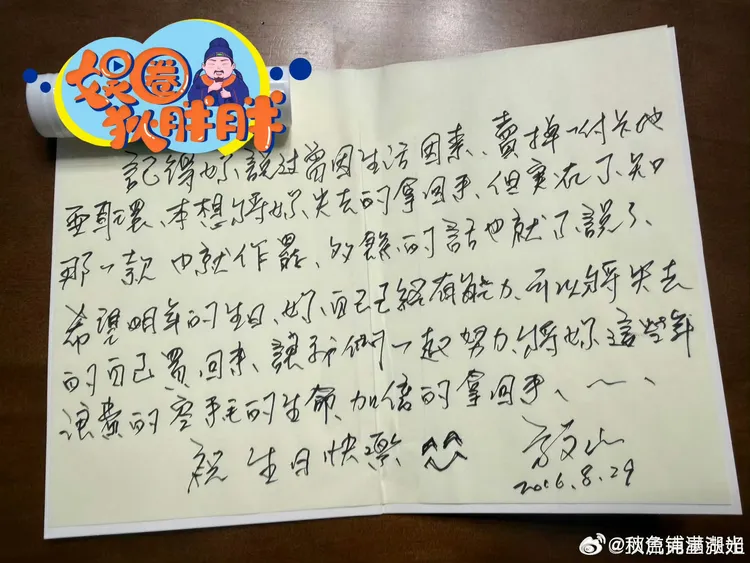 娱圈
狄胖胖
記得妳說过曾因生活因素、賣掉一付卡地
亞耳環、本想將妳失去的拿回手、但实在不知
那一款也就作罷、多餘的話也就不說了、
希望明年的生日、妳自己已經有能力、可以將失去
的自己買回來、讓我们一起努力、將妳這些年
浪費的空手毛的生命、加倍的拿回手、
祝生日快樂
2016.8.29